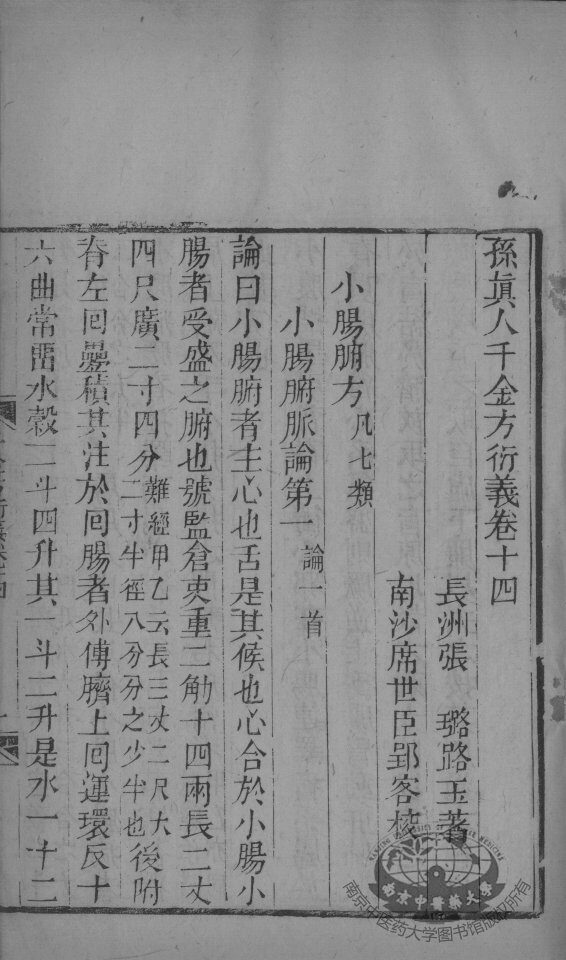 孫眞人千金方衍義卷十四
長洲張　璐路玉著
南沙席世臣郢客校
小腸腑方 凡七類
小腸腑脈論第一 論一首
論曰小腸腑者主心也舌是其候也心合於小腸小
腸者受盛之腑也號監倉吏重二觔十四兩長二丈
四尺廣二寸四分 難經甲乙云長三丈二尺大二寸半徑八分分之少半也 後附
脊左回疊積其注於回腸者外傅臍上回運環反十
六曲常畱水穀二斗四升其一斗二升是水一十二
南京中醫藥大學
南京中医药大学图书馆版权所有